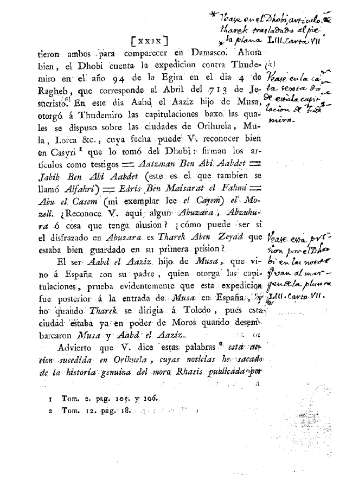 Vease en el Dhobi articulo
Tharek trasladado al pie
la plana LIII. Carta VII.
[XXIX]
tieron ambos para comparecer en Damasco. Ahora
bien, el Dhobi cuenta la expedicion contra Thude-
miro en el año 94 de la Egira en el dia 4 de
Ragheb, que corresponde al Abril del 713 de Je-
sucristo. En este dia Aabd el Aaziz hijo de Musa,
otorgó á Thudemiro las capitulaciones baxo las qua-
les se dispuso sobre las ciudades de Orihuela, Mu-
la, Lorca &c., cuya fecha puede V. reconocer bien
en Casyri 1 que lo tomó del Dhobi: firman los ar-
tículos como testigos = Aatzman Ben Abi Aabdet =
Jabib Ben Abi Aabdet (este es el que tambien se
llamó Alfahri) = Edris Ben Maisarat el Fahmi =
Abu el Casem (mi exemplar lee el Cayem) el Mo-
zeli. ¿Reconoce V. aqui algun Abuzara, Abzuhu-
ra ó cosa que tenga alusion? ¿cómo puede ser si
el disfrazado en Abuzara es Tharek Aben Zeyad que
estaba bien guardado en su primera prision?
El ser Aabd el Aaziz hijo de Musa, que vi-
no á España con su padre, quien otorga las capi-
tulaciones, prueba evidentemente que esta expedicion
fue posterior á la entrada de Musa en España, y
no quando Tharek se dirigia á Toledo, pués esta
ciudad estaba ya en poder de Moros quando desem-
barcaron Musa y Aabd el Aaziz.
Advierto que V. dice estas palabras 2 esta ac-
cion sucedida en Orihuela, cuyas noticias he sacado
de la historia genuina del moro Rhasis publicada por
1 Tom. 2. pag. 105. y 106.
2 Tom. 12. pag. 18.
(a)
Vease en la ca
la
de esta capi-
tulacion de Tude
mira.
Vease esta pri
sion por el Dho
bi en las notas
al mar-
gen de la plana
LIII. Carta VII.